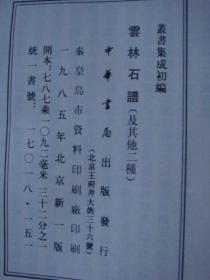 叢書集成初編
雲林石譜(及其他二種)
中華書局出版發行
(北京王府井大街三十六號)
秦皇島市資料印刷廠印刷
一九八五年北京新一版
開本:七八七乘一〇九二毫米 三十二分之一
統一書號:一七〇一八·一五一